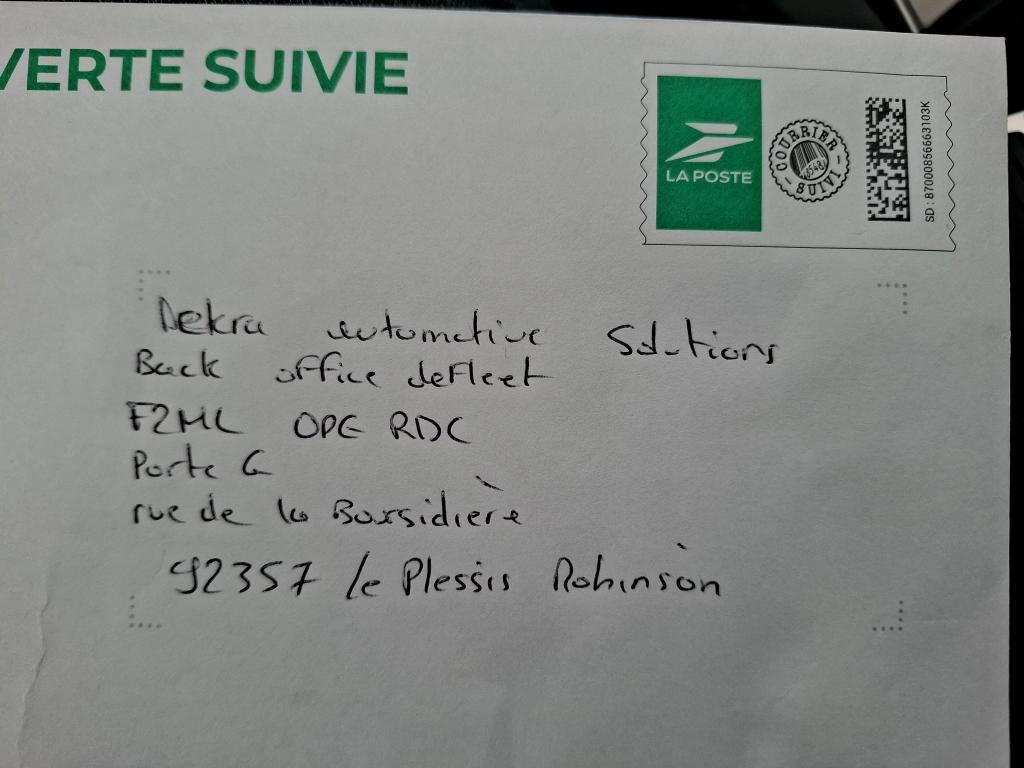 VERTE SUIVIE
LA POSTE
COURRIER
SUIVI
SD : 87000856663103K
Dekra automotive Solutions
Back office deFleet
F2ML OPE RDC
Porte G
rue de la Boursidière
92357 le Plessis Robinson